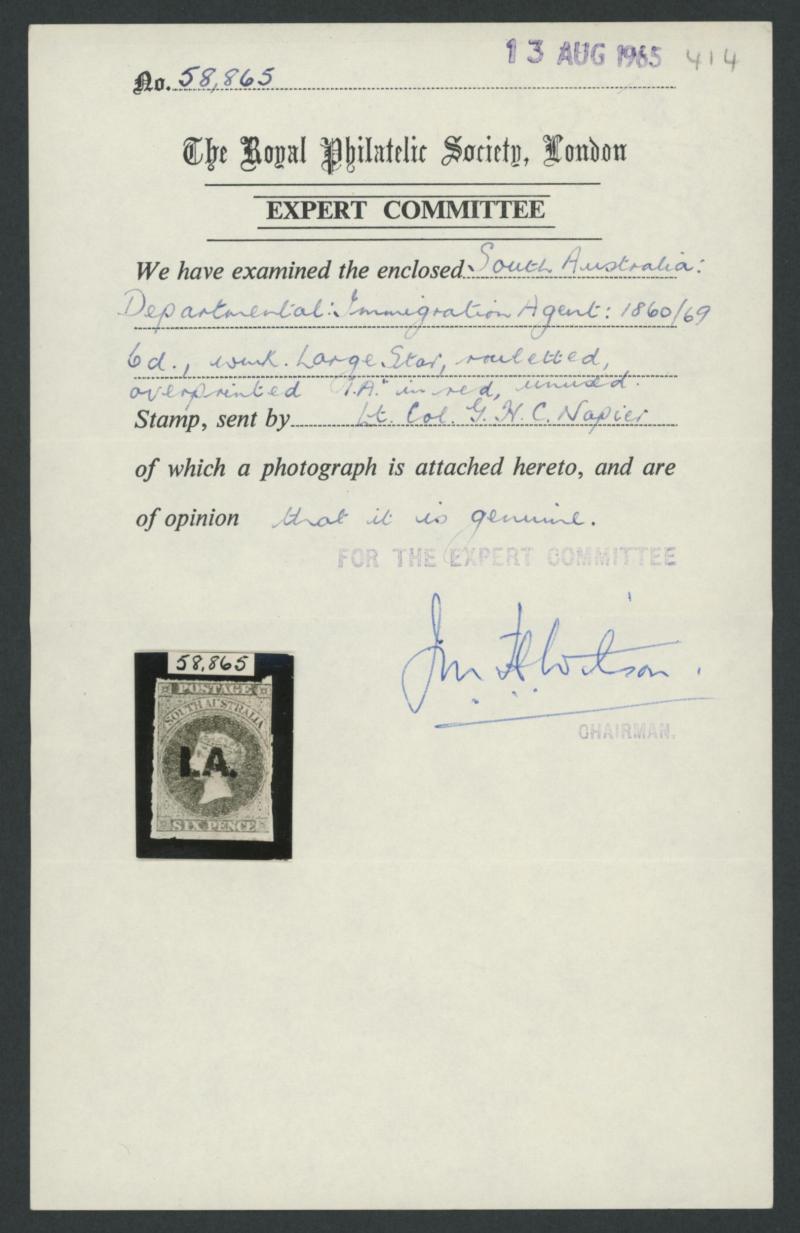 13 AUG 1965 414
No. 58,865
The Royal Philatelic Society, London
EXPERT COMMITTEE
We have examined the enclosed South Australia:
Departmental: Immigration Agent: 1860/69
6d., wmk. Large Star, rouletted,
overprinted "I.A." in red, unused.
Stamp, sent by Lt. Col. G. H. C. Napier
of which a photograph is attached hereto, and are
of opinion that it is genuine.
FOR THE EXPERT COMMITTEE
CHAIRMAN.
58,865
POSTAGE
SOUTH AUSTRALIA
I.A.
SIX PENCE